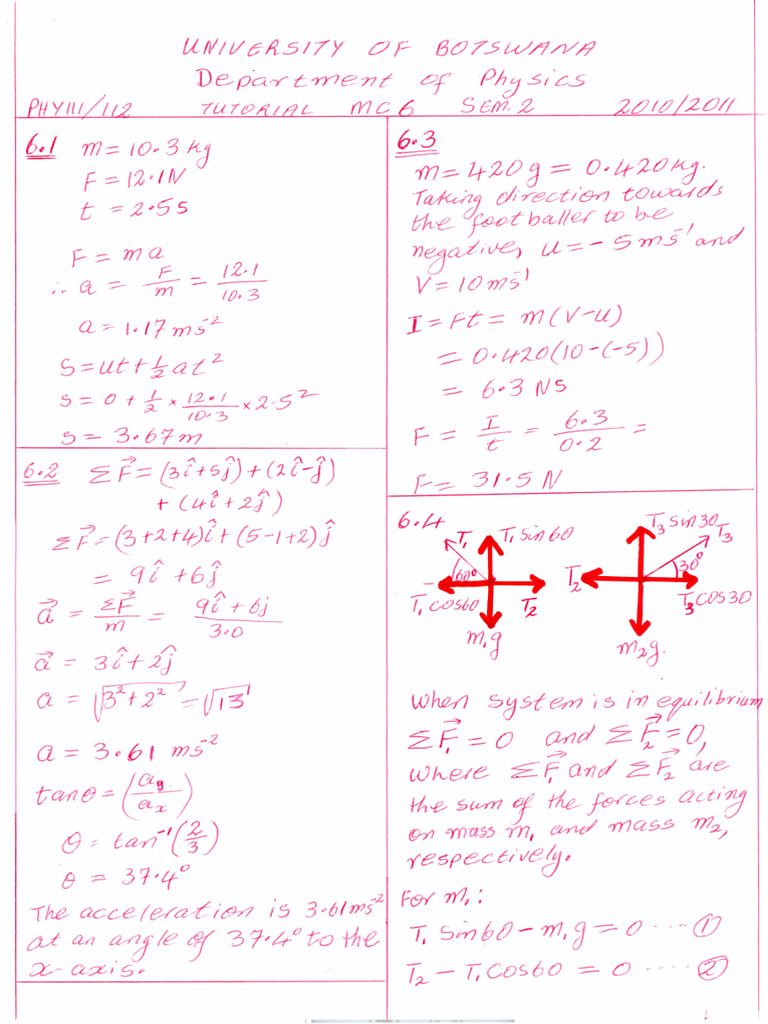 UNIVERSITY OF BOTSWANA
Department of Physics
PHY111/112 TUTORIAL MC6 SEM.2 2010/2011
6.1 m = 10.3 kg
F = 12.1N
t = 2.5s
F = ma
∴ a = F/m = 12.1/10.3
a = 1.17 ms⁻²
S = ut + ½ at²
S = 0 + ½ × 12.1/10.3 × 2.5²
S = 3.67m
6.2 ΣF⃗ = (3î+5ĵ) + (2î-ĵ)
+ (4î+2ĵ)
ΣF⃗ = (3+2+4)î + (5-1+2)ĵ
= 9î + 6ĵ
a⃗ = ΣF⃗/m = (9î + 6j)/3.0
a⃗ = 3î + 2ĵ
a = √(3² + 2²) = √13
a = 3.61 ms⁻²
tanθ = (ay/ax)
θ = tan⁻¹(2/3)
θ = 37.4°
The acceleration is 3.61ms⁻²
at an angle of 37.4° to the
x-axis.
6.3
m = 420g = 0.420kg.
Taking direction towards
the footballer to be
negative, u = -5ms⁻¹ and
V = 10ms⁻¹
I = Ft = m(V-u)
= 0.420(10-(-5))
= 6.3 NS
F = I/t = 6.3/0.2 =
F = 31.5 N
6.4
T₁ T₁ sin60
60°
T₁ cos60 T₂
m₁g
T₃ sin30 T₃
T₂ 30°
T₃ cos30
m₂g.
When system is in equilibrium
ΣF⃗₁ = 0 and ΣF⃗₂ = 0,
where ΣF⃗₁ and ΣF⃗₂ are
the sum of the forces acting
on mass m₁ and mass m₂,
respectively.
For m₁:
T₁ sin60 - m₁g = 0 ---- ①
T₂ - T₁ cos60 = 0 ----- ②